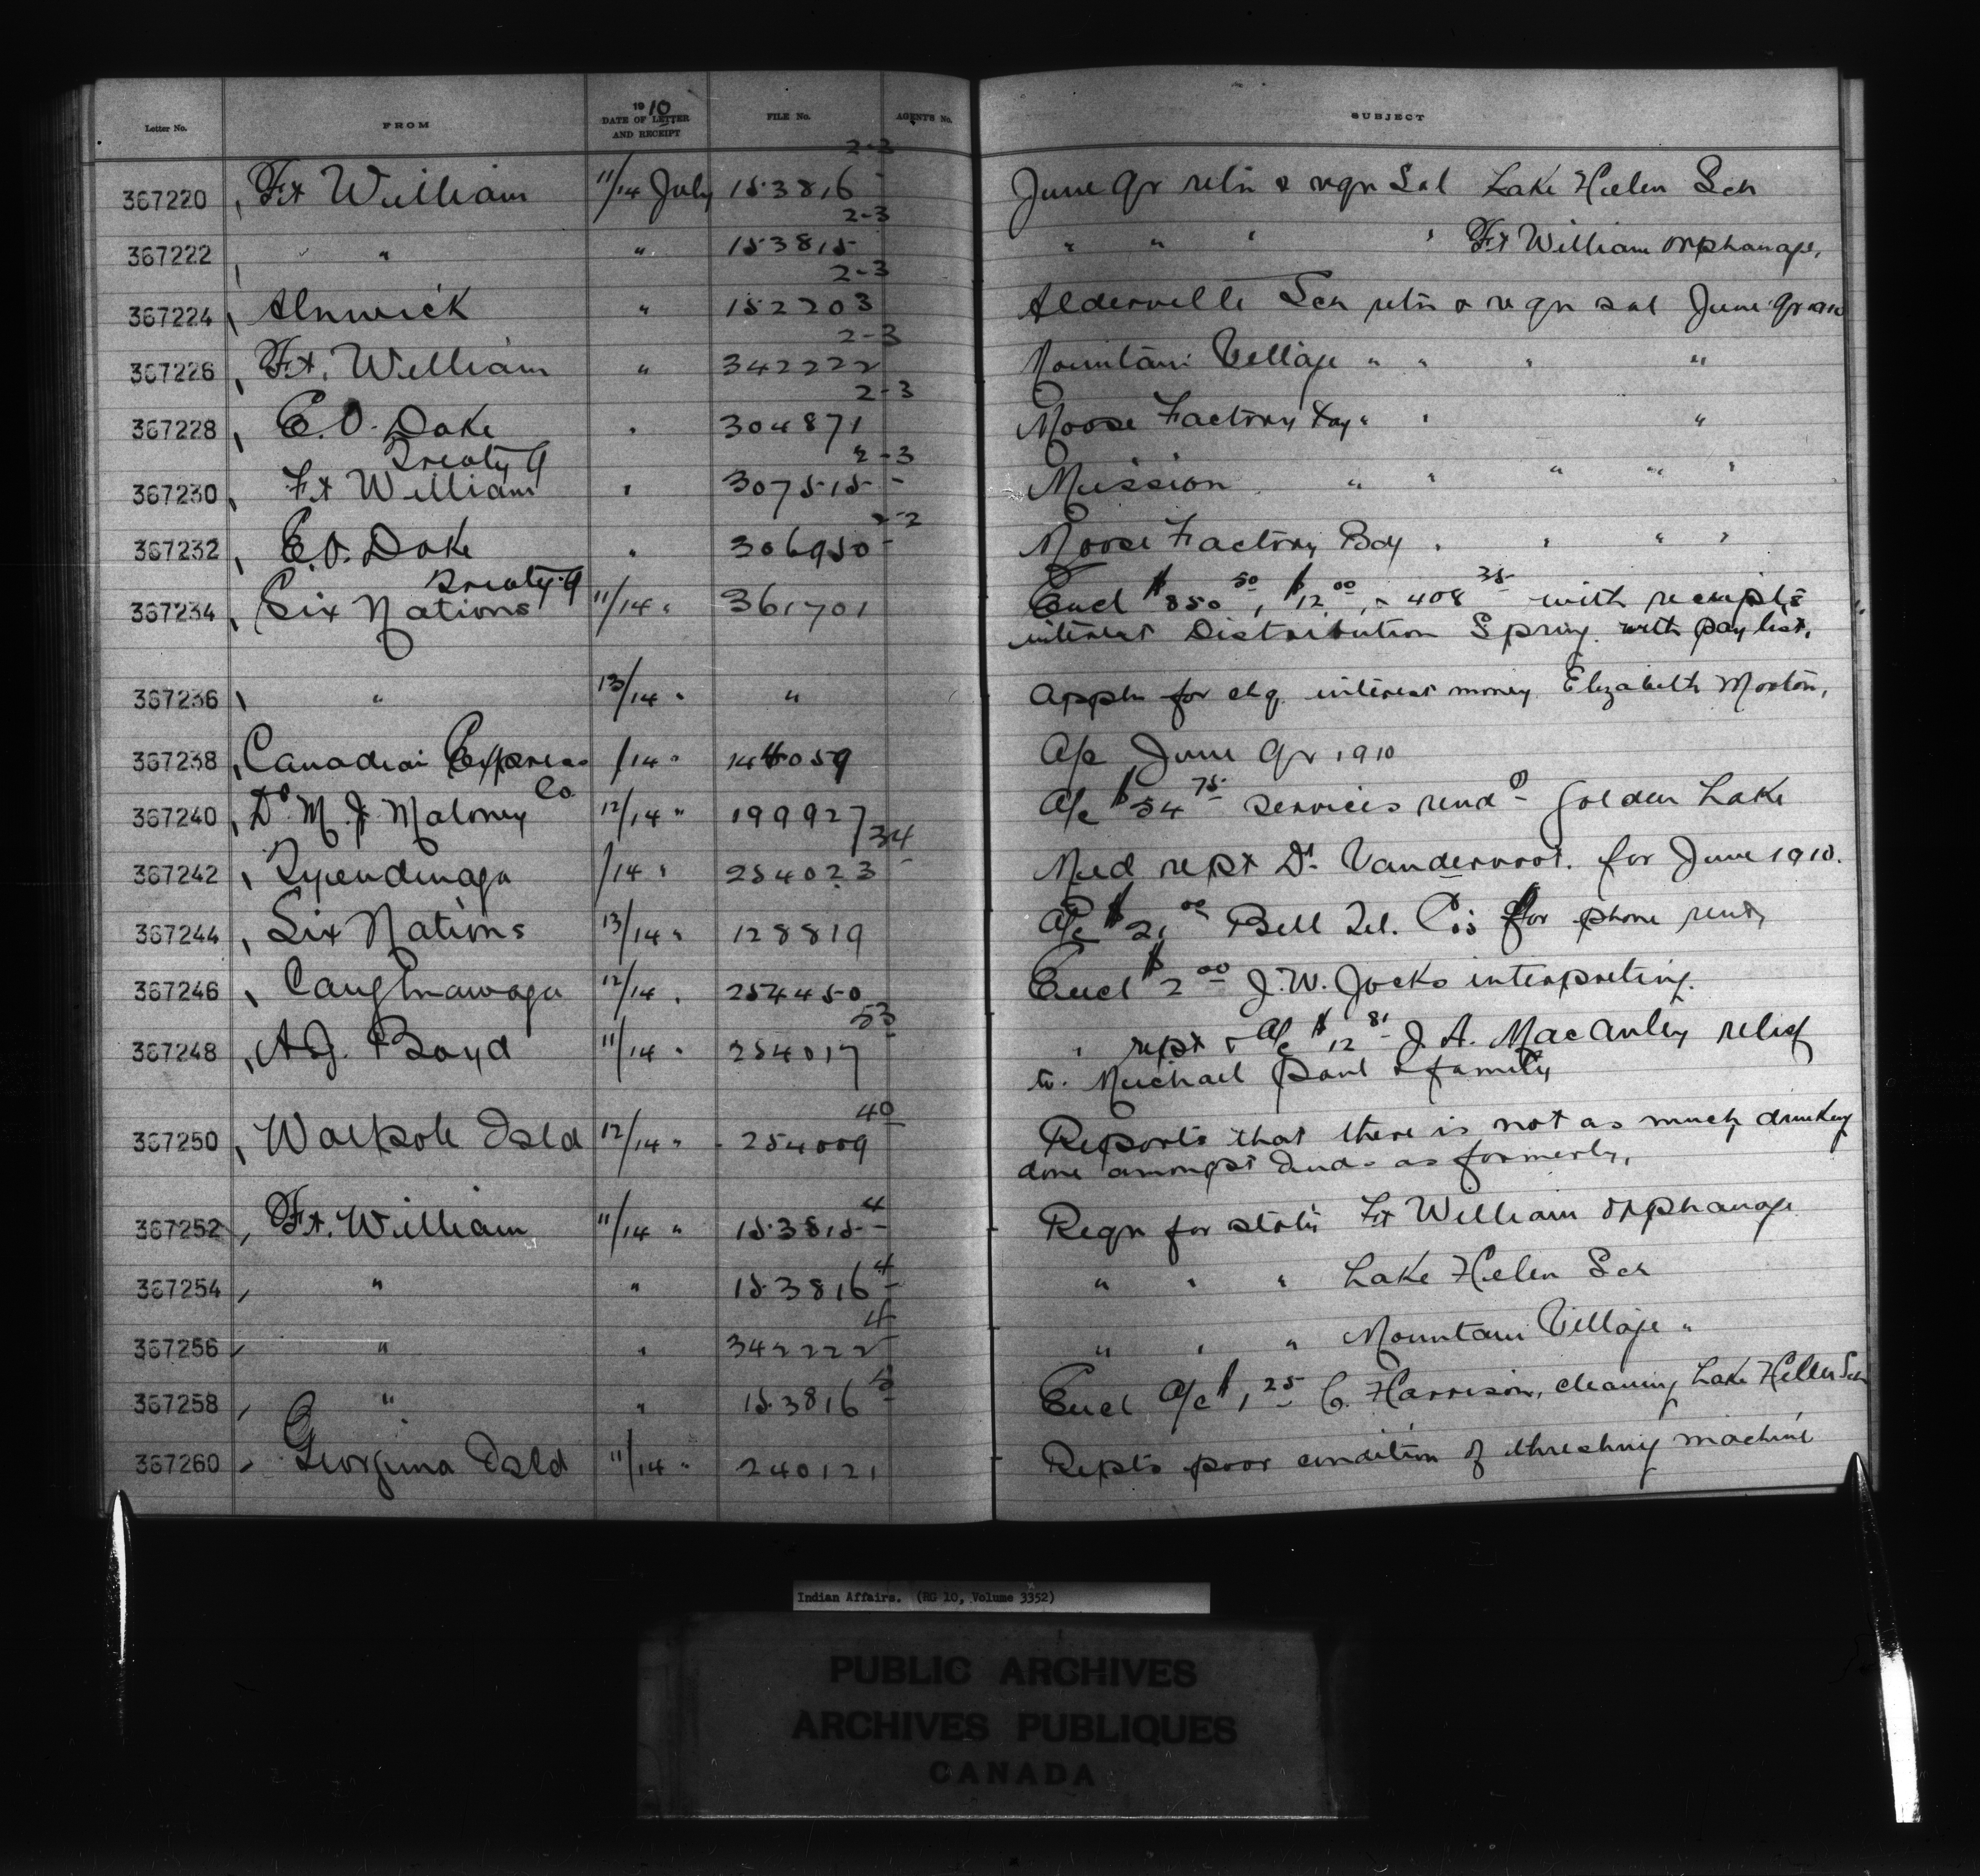 Letter No. FROM 1910 DATE OF LETTER AND RECEIPT FILE No. AGENTS No. SUBJECT
367220 Ft William 11/14 July 153816 2-3 June qr retn & reqn Sal Lake Helen Sch
367222 " " 153815 2-3 " " " " Ft William Orphanage,
367224 Alnwick " 152203 2-3 Alderville Sch retn & reqn sal June qr 1910
367226 Ft. William " 342222 2-3 Mountain Village " " " "
367228 E.O. Dake Treaty 9 " 304871 2-3 Moose Factory Day " " "
367230 Ft William " 307515 2-3 Mission " " " " "
367232 E.O. Dake Treaty 9 " 306950 2-2 Moose Factory Bdg " " " "
367234 Six Nations 11/14 " 361701 Encl $850.50, $12.00, & 408.35 with receipts
interest Distribution Spring. with pay list.
367236 " 13/14 " " Appln for chq interest money Elizabeth Morton,
367238 Canadian Express Co /14 " 144059 A/c June Qr 1910
367240 Dr M. J. Maloney 12/14 " 199927 A/c $54.75 services rend'd Golden Lake
367242 Tyendinaga /14 " 254023 34 Med rept Dr. Vandervoort. for June 1910.
367244 Six Nations 13/14 " 128819 A/c $2.00 Bell Tel. Co's for phone rent,
367246 Caughnawaga 12/14 " 254450 Encl $2.00 J.W. Jocks interpreting.
367248 A.J. Boyd 11/14 " 254017 53 " rept & A/c $12.81 J. A. MacAuley relief
to. Michael Paul & family
367250 Walpole Isld 12/14 " 254009 40 Reports that there is not as much drinking
done amongst Inds as formerly,
367252 Ft. William 11/14 " 153815 4 Reqn for statn Ft William Orphanage
367254 " " 153816 4 " " " Lake Helen Sch
367256 " " 342222 4 " " " Mountain Village "
367258 " " 153816 3 Encl A/c $1.25 C. Harrison, cleaning Lake Hellen Sch
367260 Georgina Isld 11/14 " 240121 Repts poor condition of threshing machine
Indian Affairs. (RG 10, Volume 3352)
PUBLIC ARCHIVES
ARCHIVES PUBLIQUES
CANADA